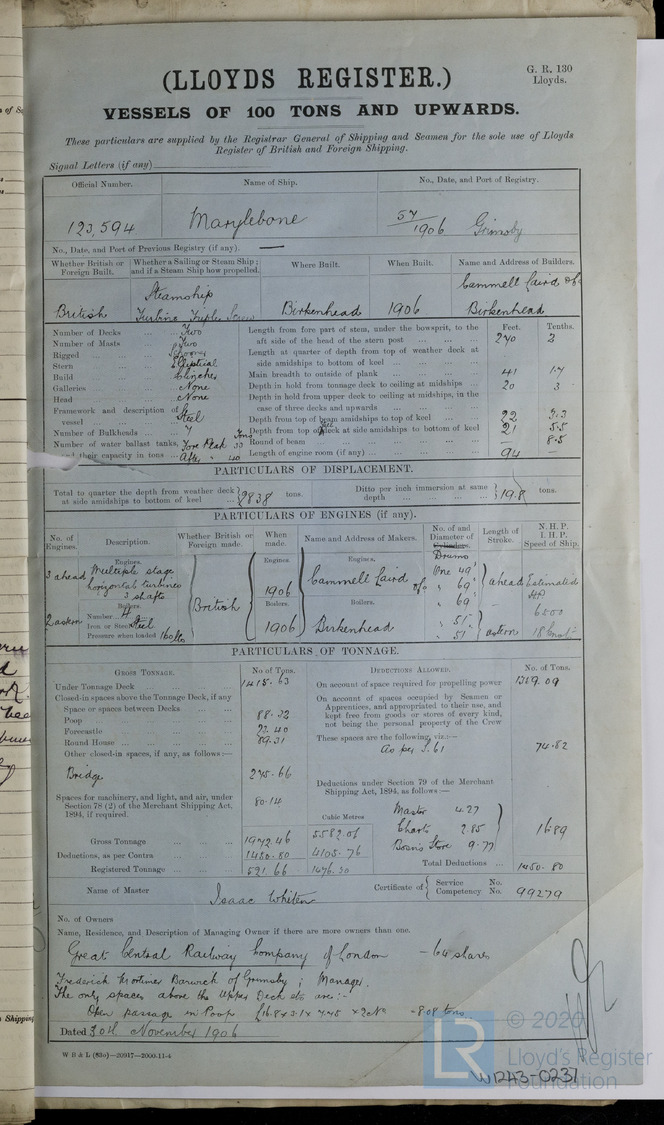 (LLOYDS REGISTER.)
G. R. 130
Lloyds.
VESSELS OF 100 TONS AND UPWARDS.
These particulars are supplied by the Registrar General of Shipping and Seamen for the sole use of Lloyds
Register of British and Foreign Shipping.
Signal Letters (if any)
Official Number. Name of Ship. No., Date, and Port of Registry.
123,594 Marylebone 57/1906 Grimsby
No., Date, and Port of Previous Registry (if any). —
Whether British or Foreign Built. Whether a Sailing or Steam Ship; and if a Steam Ship how propelled. Where Built. When Built. Name and Address of Builders.
British Steamship Turbine Triple Screw Birkenhead 1906 Cammell Laird & Co Birkenhead
Number of Decks ... Two
Number of Masts ... Two
Rigged ... Schooner
Stern ... Elliptical
Build ... Clincher
Galleries ... None
Head ... None
Framework and description of vessel ... Steel
Number of Bulkheads ... 7
Number of water ballast tanks, Fore Peak 33 Tons
and their capacity in tons ... After " 40
Feet. Tenths.
Length from fore part of stem, under the bowsprit, to the
aft side of the head of the stern post ... 270 2
Length at quarter of depth from top of weather deck at
side amidships to bottom of keel ...
Main breadth to outside of plank ... 41 1.7
Depth in hold from tonnage deck to ceiling at midships ... 20 3
Depth in hold from upper deck to ceiling at midships, in the
case of three decks and upwards ...
Depth from top of beam amidships to top of keel ... 22 3.3
Depth from top of deck at side amidships to bottom of keel 21 5.5
Round of beam ... — 8.5
Length of engine room (if any) ... 94 —
PARTICULARS OF DISPLACEMENT.
Total to quarter the depth from weather deck
at side amidships to bottom of keel ... 2838 tons.
Ditto per inch immersion at same
depth ... 19.8 tons.
PARTICULARS OF ENGINES (if any).
No. of Engines. Description. Whether British or Foreign made. When made. Name and Address of Makers. No. of and Diameter of Cylinders. Drums Length of Stroke. N.H.P. I.H.P. Speed of Ship.
Engines. Engines. Engines.
3 ahead Multiple stage horizontal turbines 3 shafts
2 astern
Boilers. Boilers. Boilers.
Number 4
Iron or Steel Steel
Pressure when loaded 160 lbs
British
1906
1906
Cammell Laird & Co
Birkenhead
One 49"
" 69"
" 69"
" 51"
" 51"
ahead
astern
Estimated
HP
6500
18 Knots
PARTICULARS OF TONNAGE.
GROSS TONNAGE. No of Tons.
Under Tonnage Deck ... 1415.63
Closed-in spaces above the Tonnage Deck, if any
Space or spaces between Decks ...
Poop ... 88.32
Forecastle ... 23.40
Round House ... 89.31
Other closed-in spaces, if any, as follows:—
Bridge 275.66
Spaces for machinery, and light, and air, under
Section 78 (2) of the Merchant Shipping Act,
1894, if required. 80.14
Cubic Metres
Gross Tonnage ... 1972.46 5582.06
Deductions, as per Contra ... 1450.80 4105.76
Registered Tonnage ... 521.66 1476.30
DEDUCTIONS ALLOWED. No. of Tons.
On account of space required for propelling power 1359.09
On account of spaces occupied by Seamen or
Apprentices, and appropriated to their use, and
kept free from goods or stores of every kind,
not being the personal property of the Crew
These spaces are the following, viz:—
As per S.61 74.82
Deductions under Section 79 of the Merchant
Shipping Act, 1894, as follows:—
Master 4.27
Charts 2.85
Bosns Store 9.77
16.89
Total Deductions ... 1450.80
Name of Master Isaac Whiten
Certificate of Service No. Competency No. 99279
No. of Owners
Name, Residence, and Description of Managing Owner if there are more owners than one.
Great Central Railway Company of London — 64 shares
Frederick Mortimer Barwick of Grimsby; Manager.
The only spaces above the Upper Deck etc are:-
Open passage in Poop 8.08 tons
Dated 30th November 1906
W B & L (83o)—20917—2000-11-4
W1243-0237
LR
© 2020
Lloyd's Register
Foundation